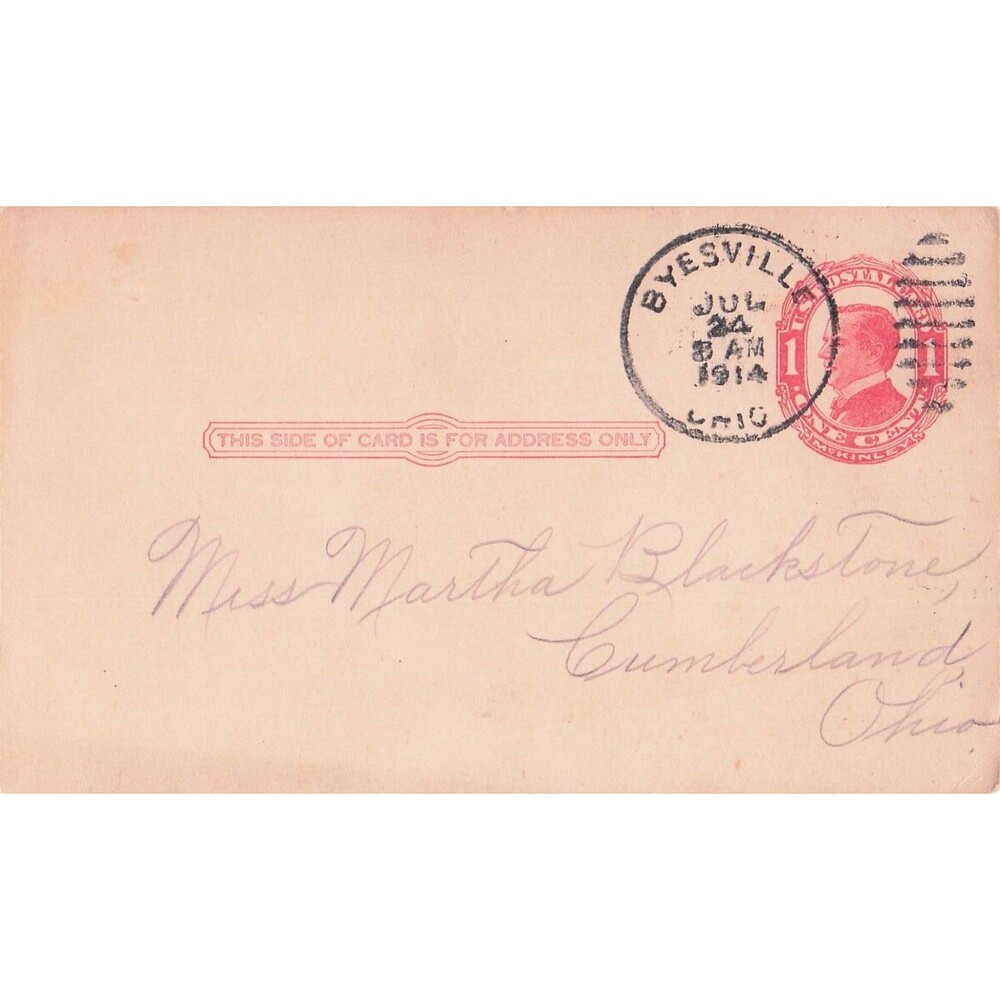 BYESVILLE
JUL
24
8 AM
1914
OHIO
U.S. POSTAL CARD
1 1
ONE CENT
McKINLEY
THIS SIDE OF CARD IS FOR ADDRESS ONLY
Miss Martha Blackstone,
Cumberland,
Ohio